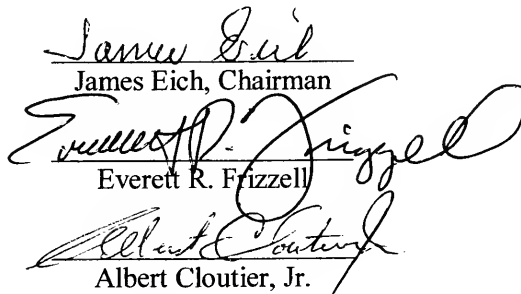 James Eich
James Eich, Chairman
Everett R. Frizzell
Everett R. Frizzell
Albert Cloutier Jr
Albert Cloutier, Jr.